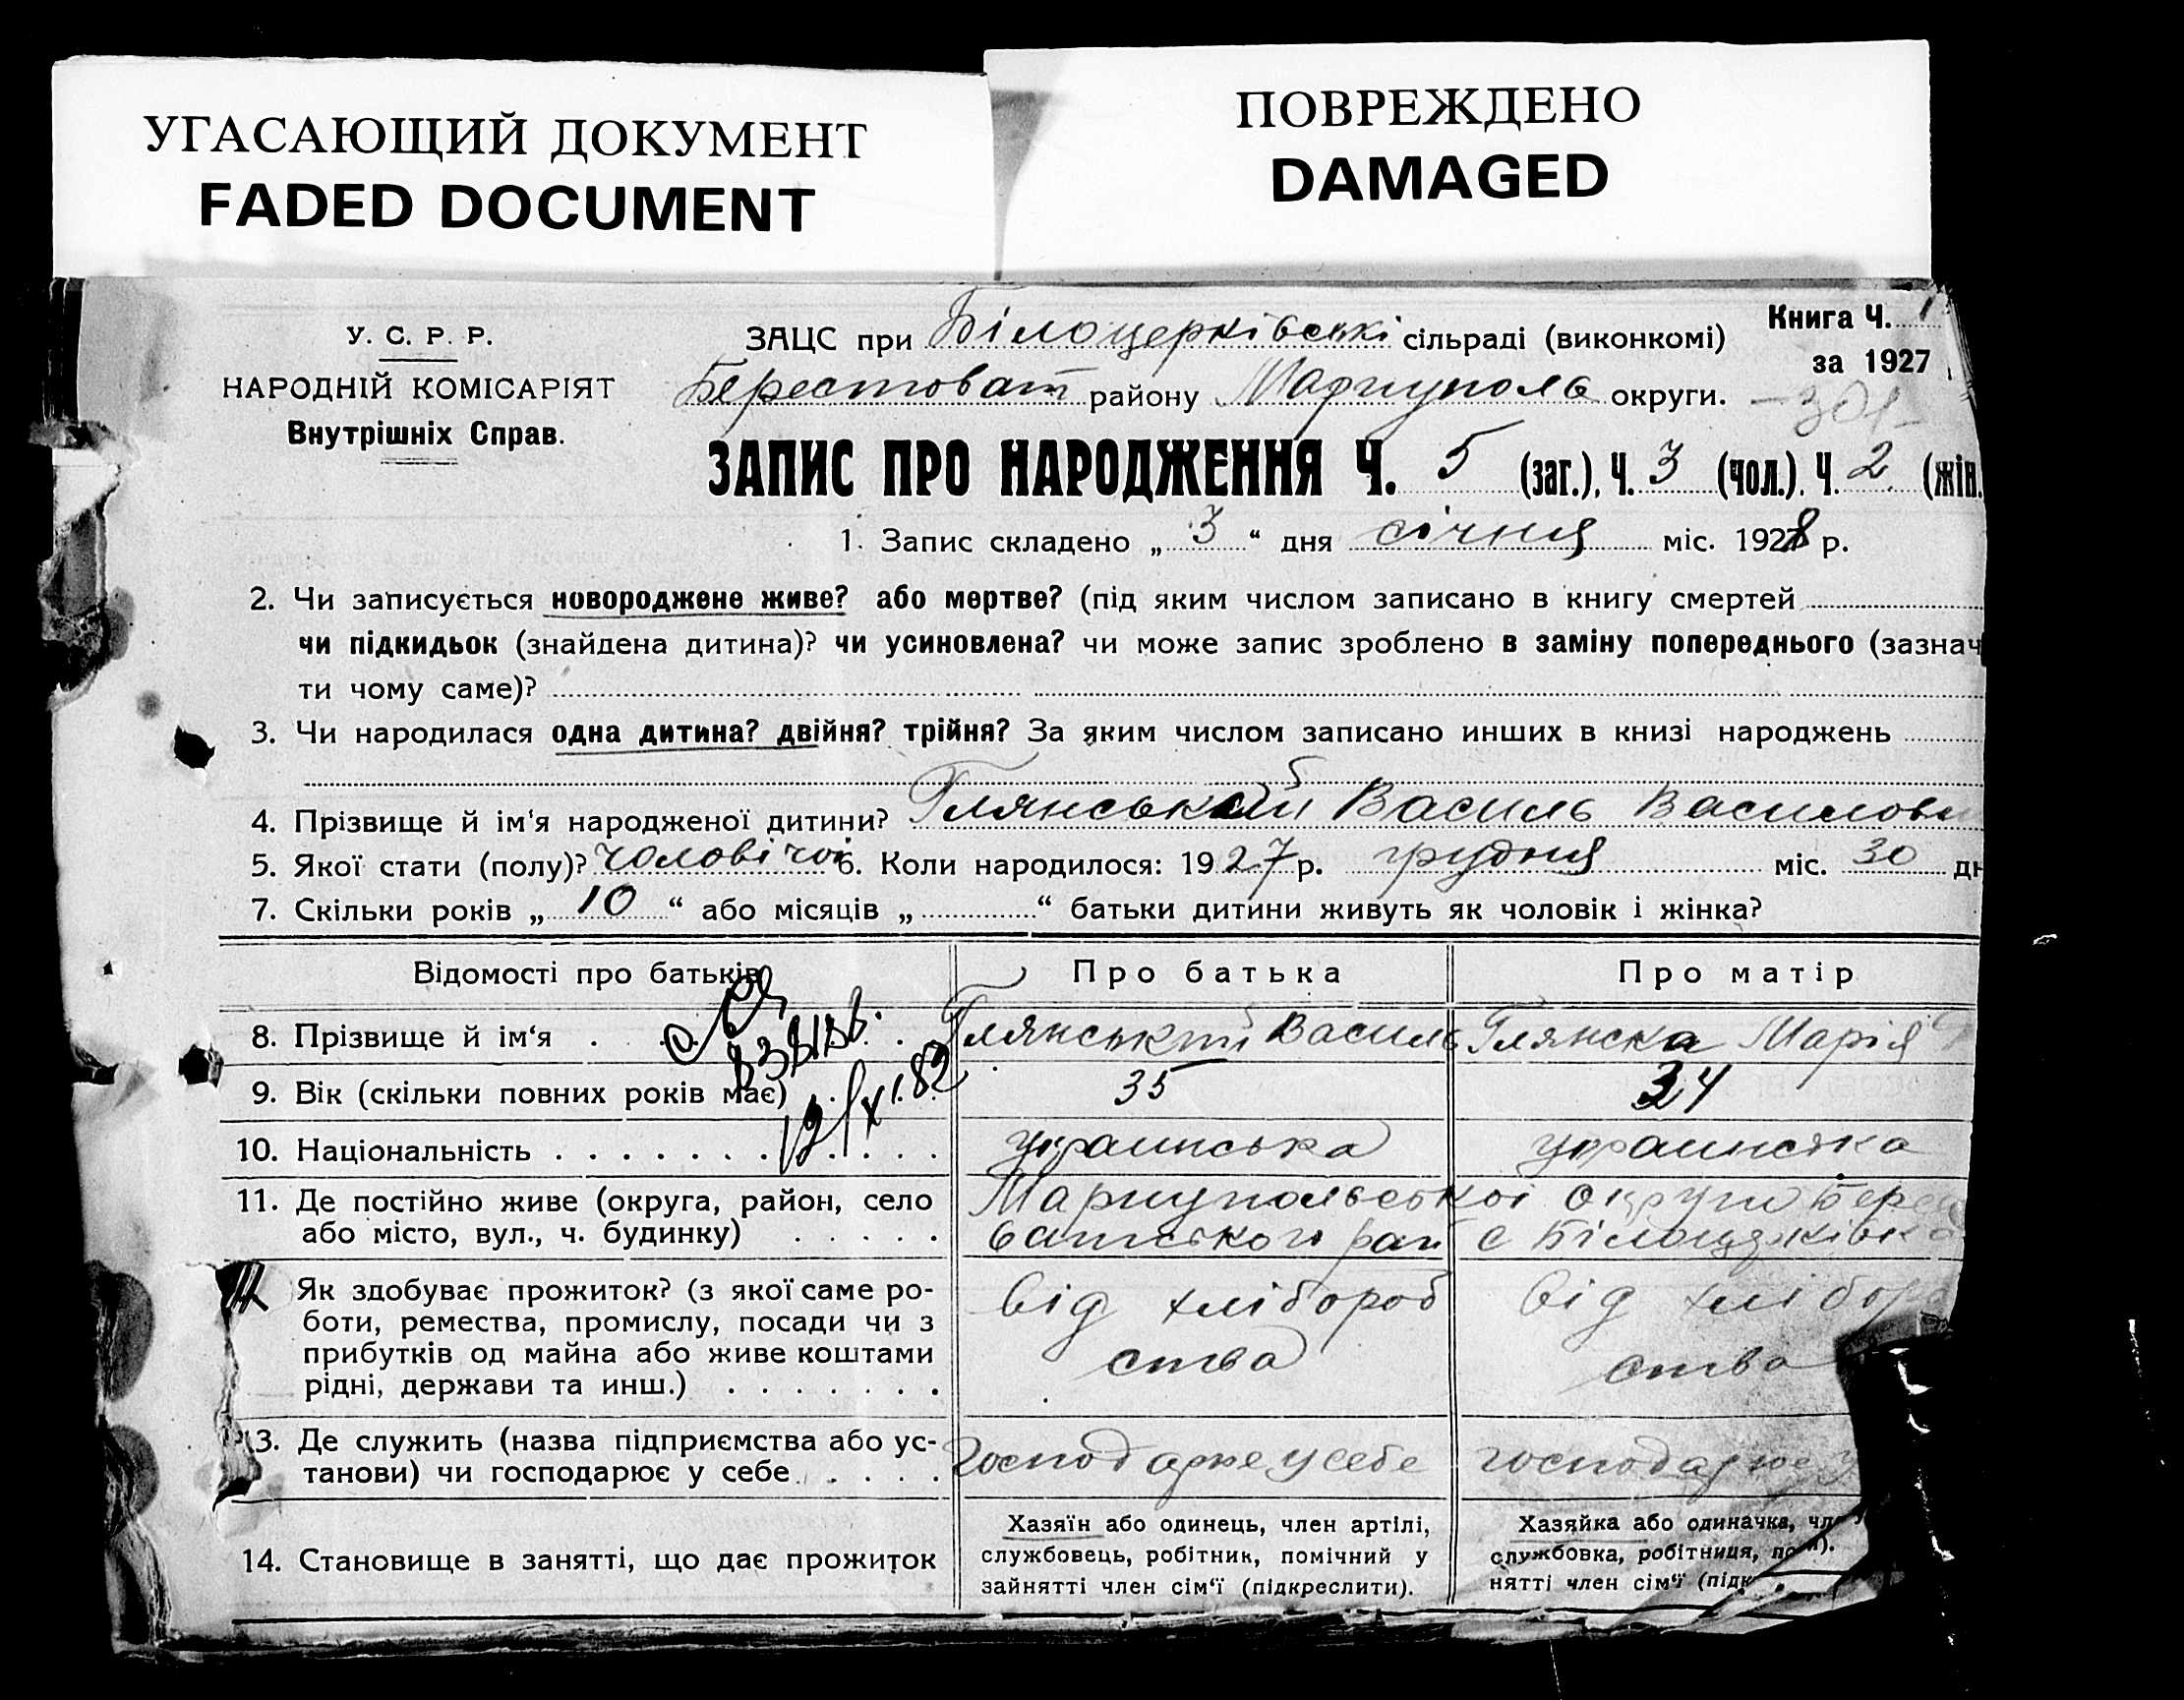 УГАСАЮЩИЙ ДОКУМЕНТ
FADED DOCUMENT
ПОВРЕЖДЕНО
DAMAGED
У. С. Р. Р.
НАРОДНІЙ КОМІСАРІЯТ
Внутрішніх Справ.
ЗАЦС при Білоцерківські сільраді (виконкомі)
Берестоват району Мариуполь округи.
Книга Ч. 1
за 1927
ЗАПИС ПРО НАРОДЖЕННЯ Ч. 5 (заг.), Ч. 3 (чол.). Ч. 2 (жін.
1. Запис складено „ 3 “ дня січня міс. 1928 р.
2. Чи записується новороджене живе? або мертве? (під яким числом записано в книгу смертей
чи підкидьок (знайдена дитина)? чи усиновлена? чи може запис зроблено в заміну попереднього (зазнач
ти чому саме)?
3. Чи народилася одна дитина? двійня? трійня? За яким числом записано инших в книзі народжень
4. Прізвище й ім'я народженої дитини? Глянський Василь
5. Якої стати (полу)? чоловічої 6. Коли народилося: 1927 р. грудня міс. 30 дн
7. Скільки років „ 10 “ або місяців „ “ батьки дитини живуть як чоловік і жінка?
Відомості про батьків Про батька Про матір
8. Прізвище й ім'я . Глянський Василь Глянска Марія
9. Вік (скільки повних років має) 35 34
19/XI.82
10. Національність . . . . . . . . . . украинська украинска
11. Де постійно живе (округа, район, село Мариупольської округи Берес
або місто, вул., ч. будинку) . . . . . ватського рай с Білоцерківка
Як здобуває прожиток? (з якої саме ро- від хлібороб від хлібор
боти, ремества, промислу, посади чи з
прибутків од майна або живе коштами ства ства
рідні, держави та инш.) . . . . . . .
13. Де служить (назва підприємства або ус- господарює у себе господарює у
танови) чи господарює у себе . . . . .
14. Становище в занятті, що дає прожиток
Хазяїн або одинець, член артілі,
службовець, робітник, помічний у
зайнятті член сім'ї (підкреслити).
Хазяйка або одиначка, чл
службовка, робітниця, по
нятті член сім'ї (підк